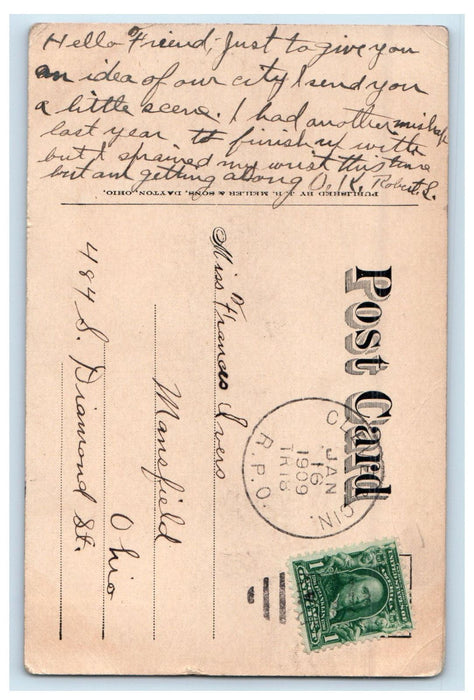 Hello Friend, Just to give you
an idea of our city I send you
a little scene. I had another mishap
last year to finish up with
but I sprained my wrist this time
but am getting along O.K. Robert L.
PUBLISHED BY E. B. MEILER & SONS, DAYTON, OHIO.
Post Card
Miss Frances Ivers
Mansfield
Ohio
484 S. Diamond St.
CIN.
JAN
16
1909
TR18
R.P.O.
1 1